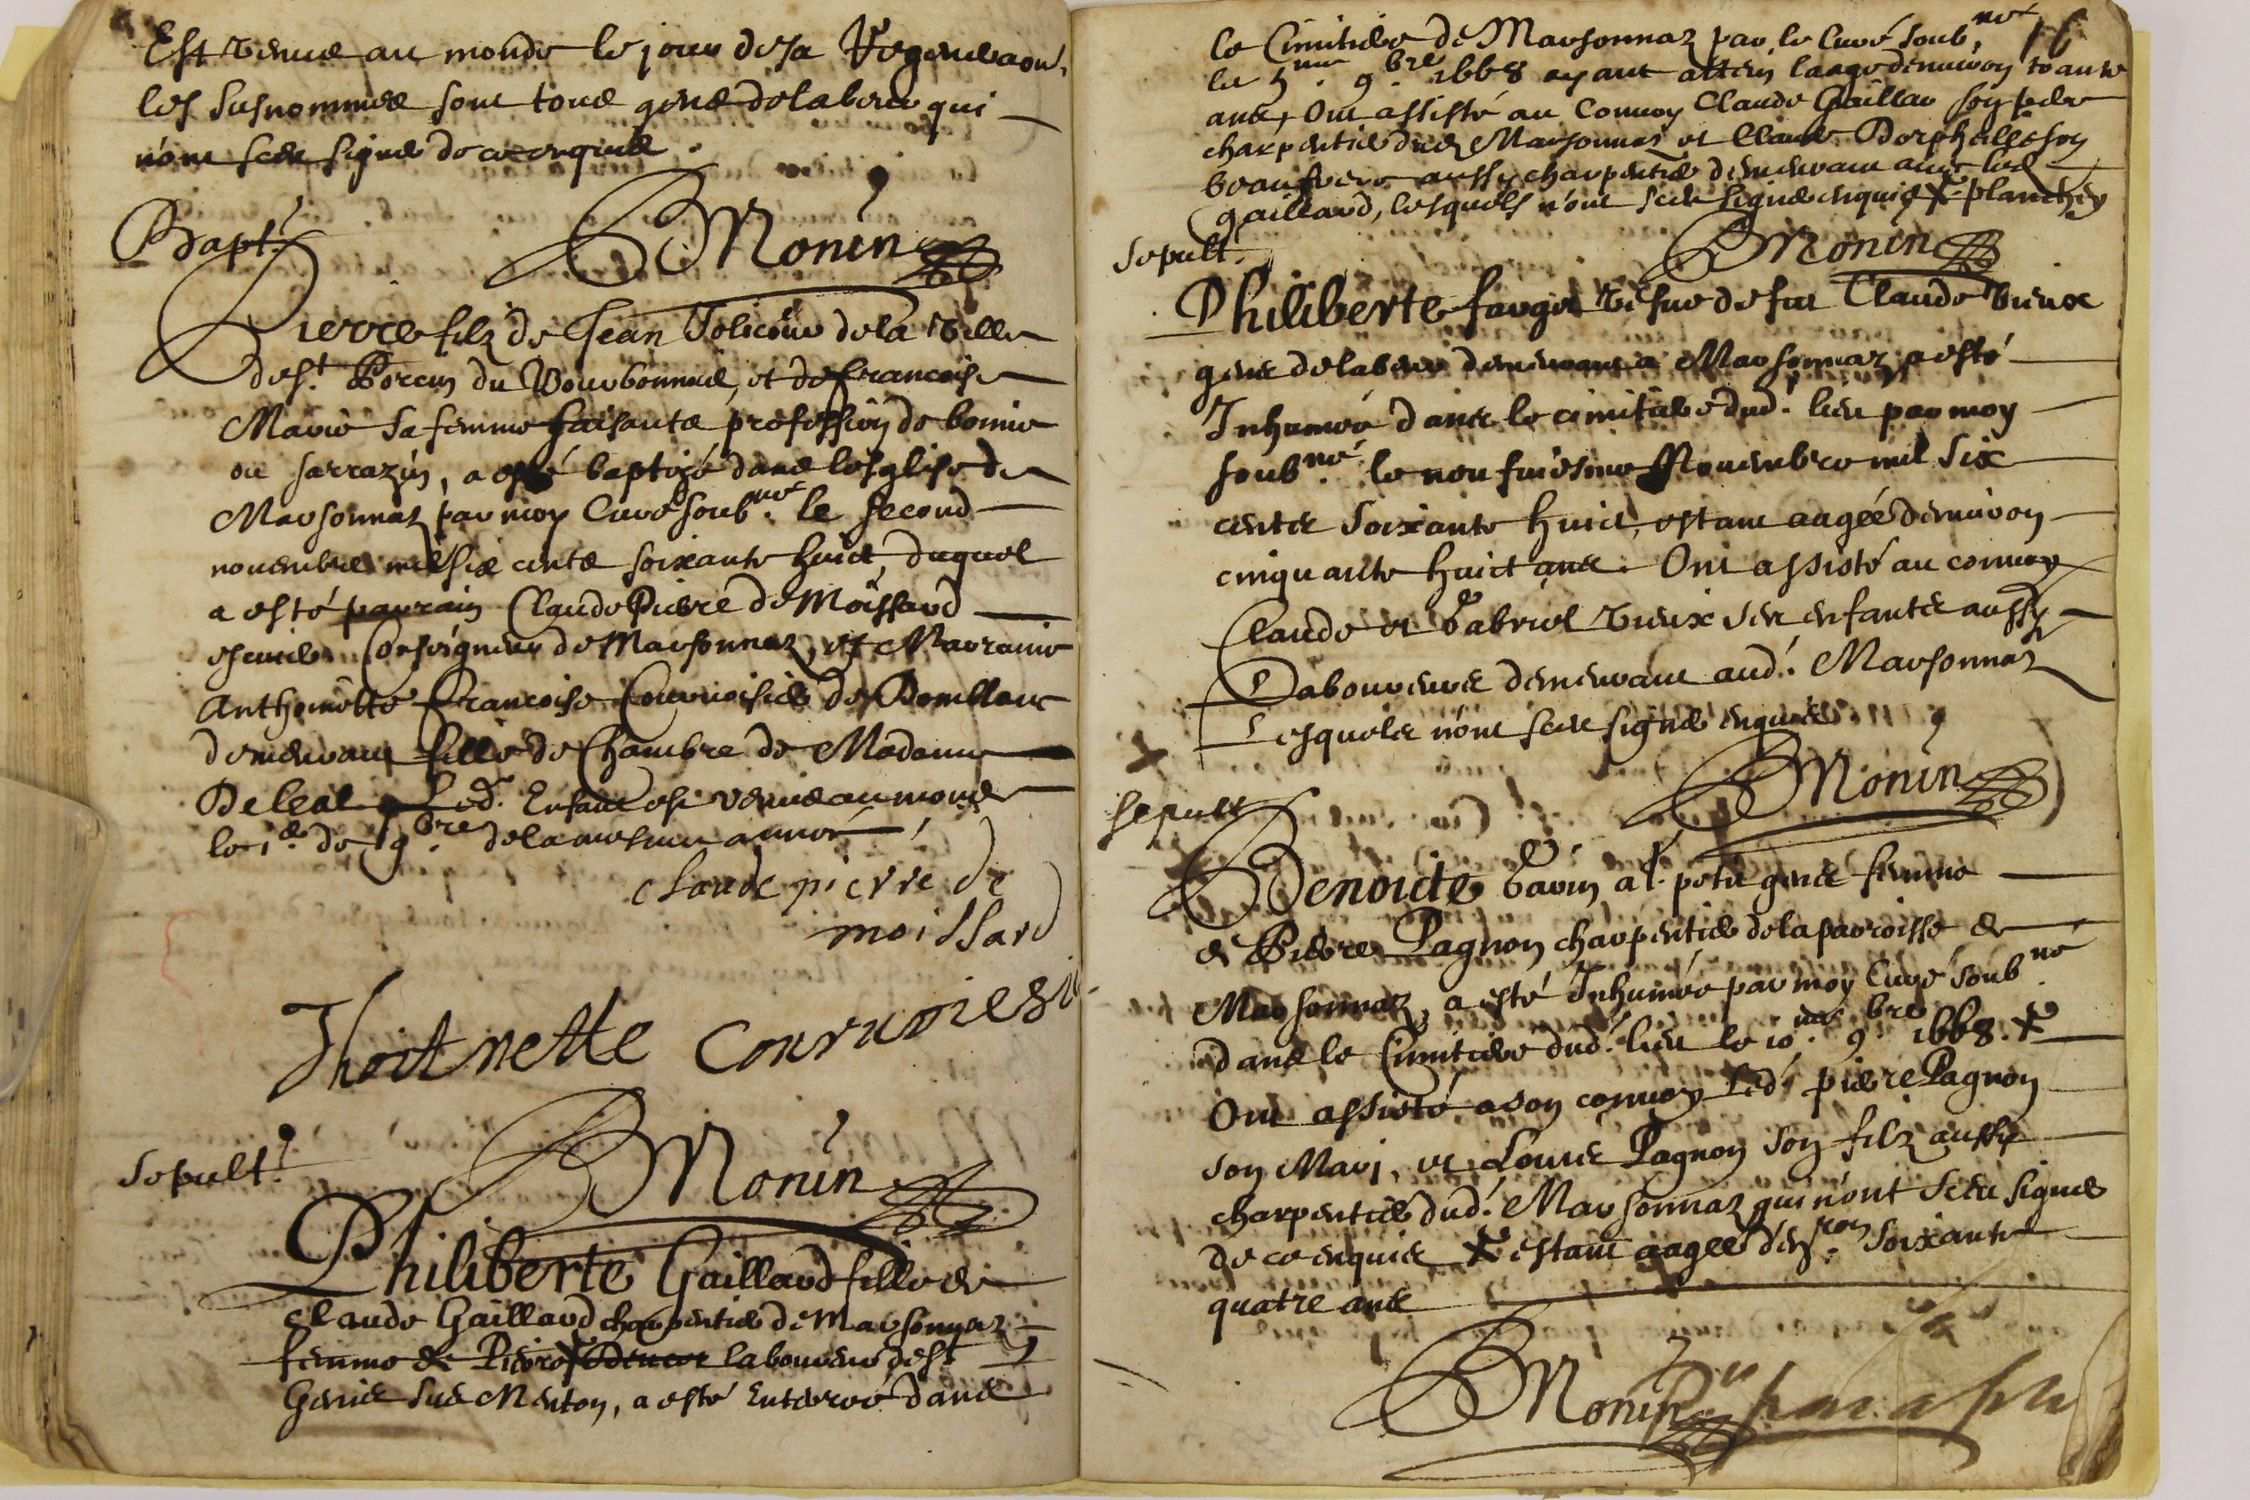 Est venue au monde le jour de sa Regeneraon,
les susnommés sont tous gens de labeur qui
n'ont sceu signer de ce enquis.
Monin
Bapt.
Pierre filz de Jean Jolicoeur de la Ville
de St. Porcin du Bourbonnois, et de francoise
Marie sa femme faisants profession de
ou sarrazin, a esté baptizé dans l'esglise de
Marsonnaz par moy Curé soubné. le second
novembre mil six cents soixante huict, duquel
a esté parrain Claude Pierre de Moissard
escuier Conseigneur de Marsonnaz, et Marraine
Anthoinette Francoise Courvoisier de Domblanc
demeurant fille de Chambre de Madame
De Leal Led. Enfant est venu au monde
le 1er de 9bre de la mesme année
claude pierre de
moissard
Thoitnette courvoiesi
Monin
Sepult.
Philiberte Gaillard fille de
Claude Gaillard charpentier de Marsonnaz
femme de Pierre laboureur de St
Genis sur Menton, a esté Enterrée dans
16
le Cimitiere de Marsonnaz par le Curé soubné
le 5me. 9bre 1668 ayant attein l'aage denuiron trante
ans, Ont assisté au Convoy Claude Gaillar son pere
charpentier dud. Marsonnaz et Claude son
beaufrere aussy charpentier demeurant auec led.
Gaillard, lesquels n'ont sceu signer enquis planchey
Monin
Sepult.
Philiberte farget vefue de feu Claude Vieux
gens de labeur demeurant a Marsonnaz a esté
Inhumée dans le cimitiere dud. lieu par moy
soubné. le neufuiesme Nouembre mil six
cents soixante huict, estant aagée denuiron
cinquante huict ans. Ont assisté au convoy
Claude et Gabriel Vieux ses enfants aussy
Laboureurs demeurant aud. Marsonnaz
Lesquels n'ont sceu signer enquis
Monin
Sepult
Benoicte Gavin petit gens femme
de Pierre Pagnon charpentier de la parroisse de
Marsonnaz, a esté Inhumée par moy Curé soubné
dans le Cimitiere dud. lieu le 10me. 9bre 1668.
Ont assisté a son convoy Led. pierre Pagnon
son Mari, et Louis Pagnon son filz aussy
charpentier dud. Marsonnaz qui n'ont sceu signer
de ce enquis estant aagee denron. soixante
quatre ans
Monin